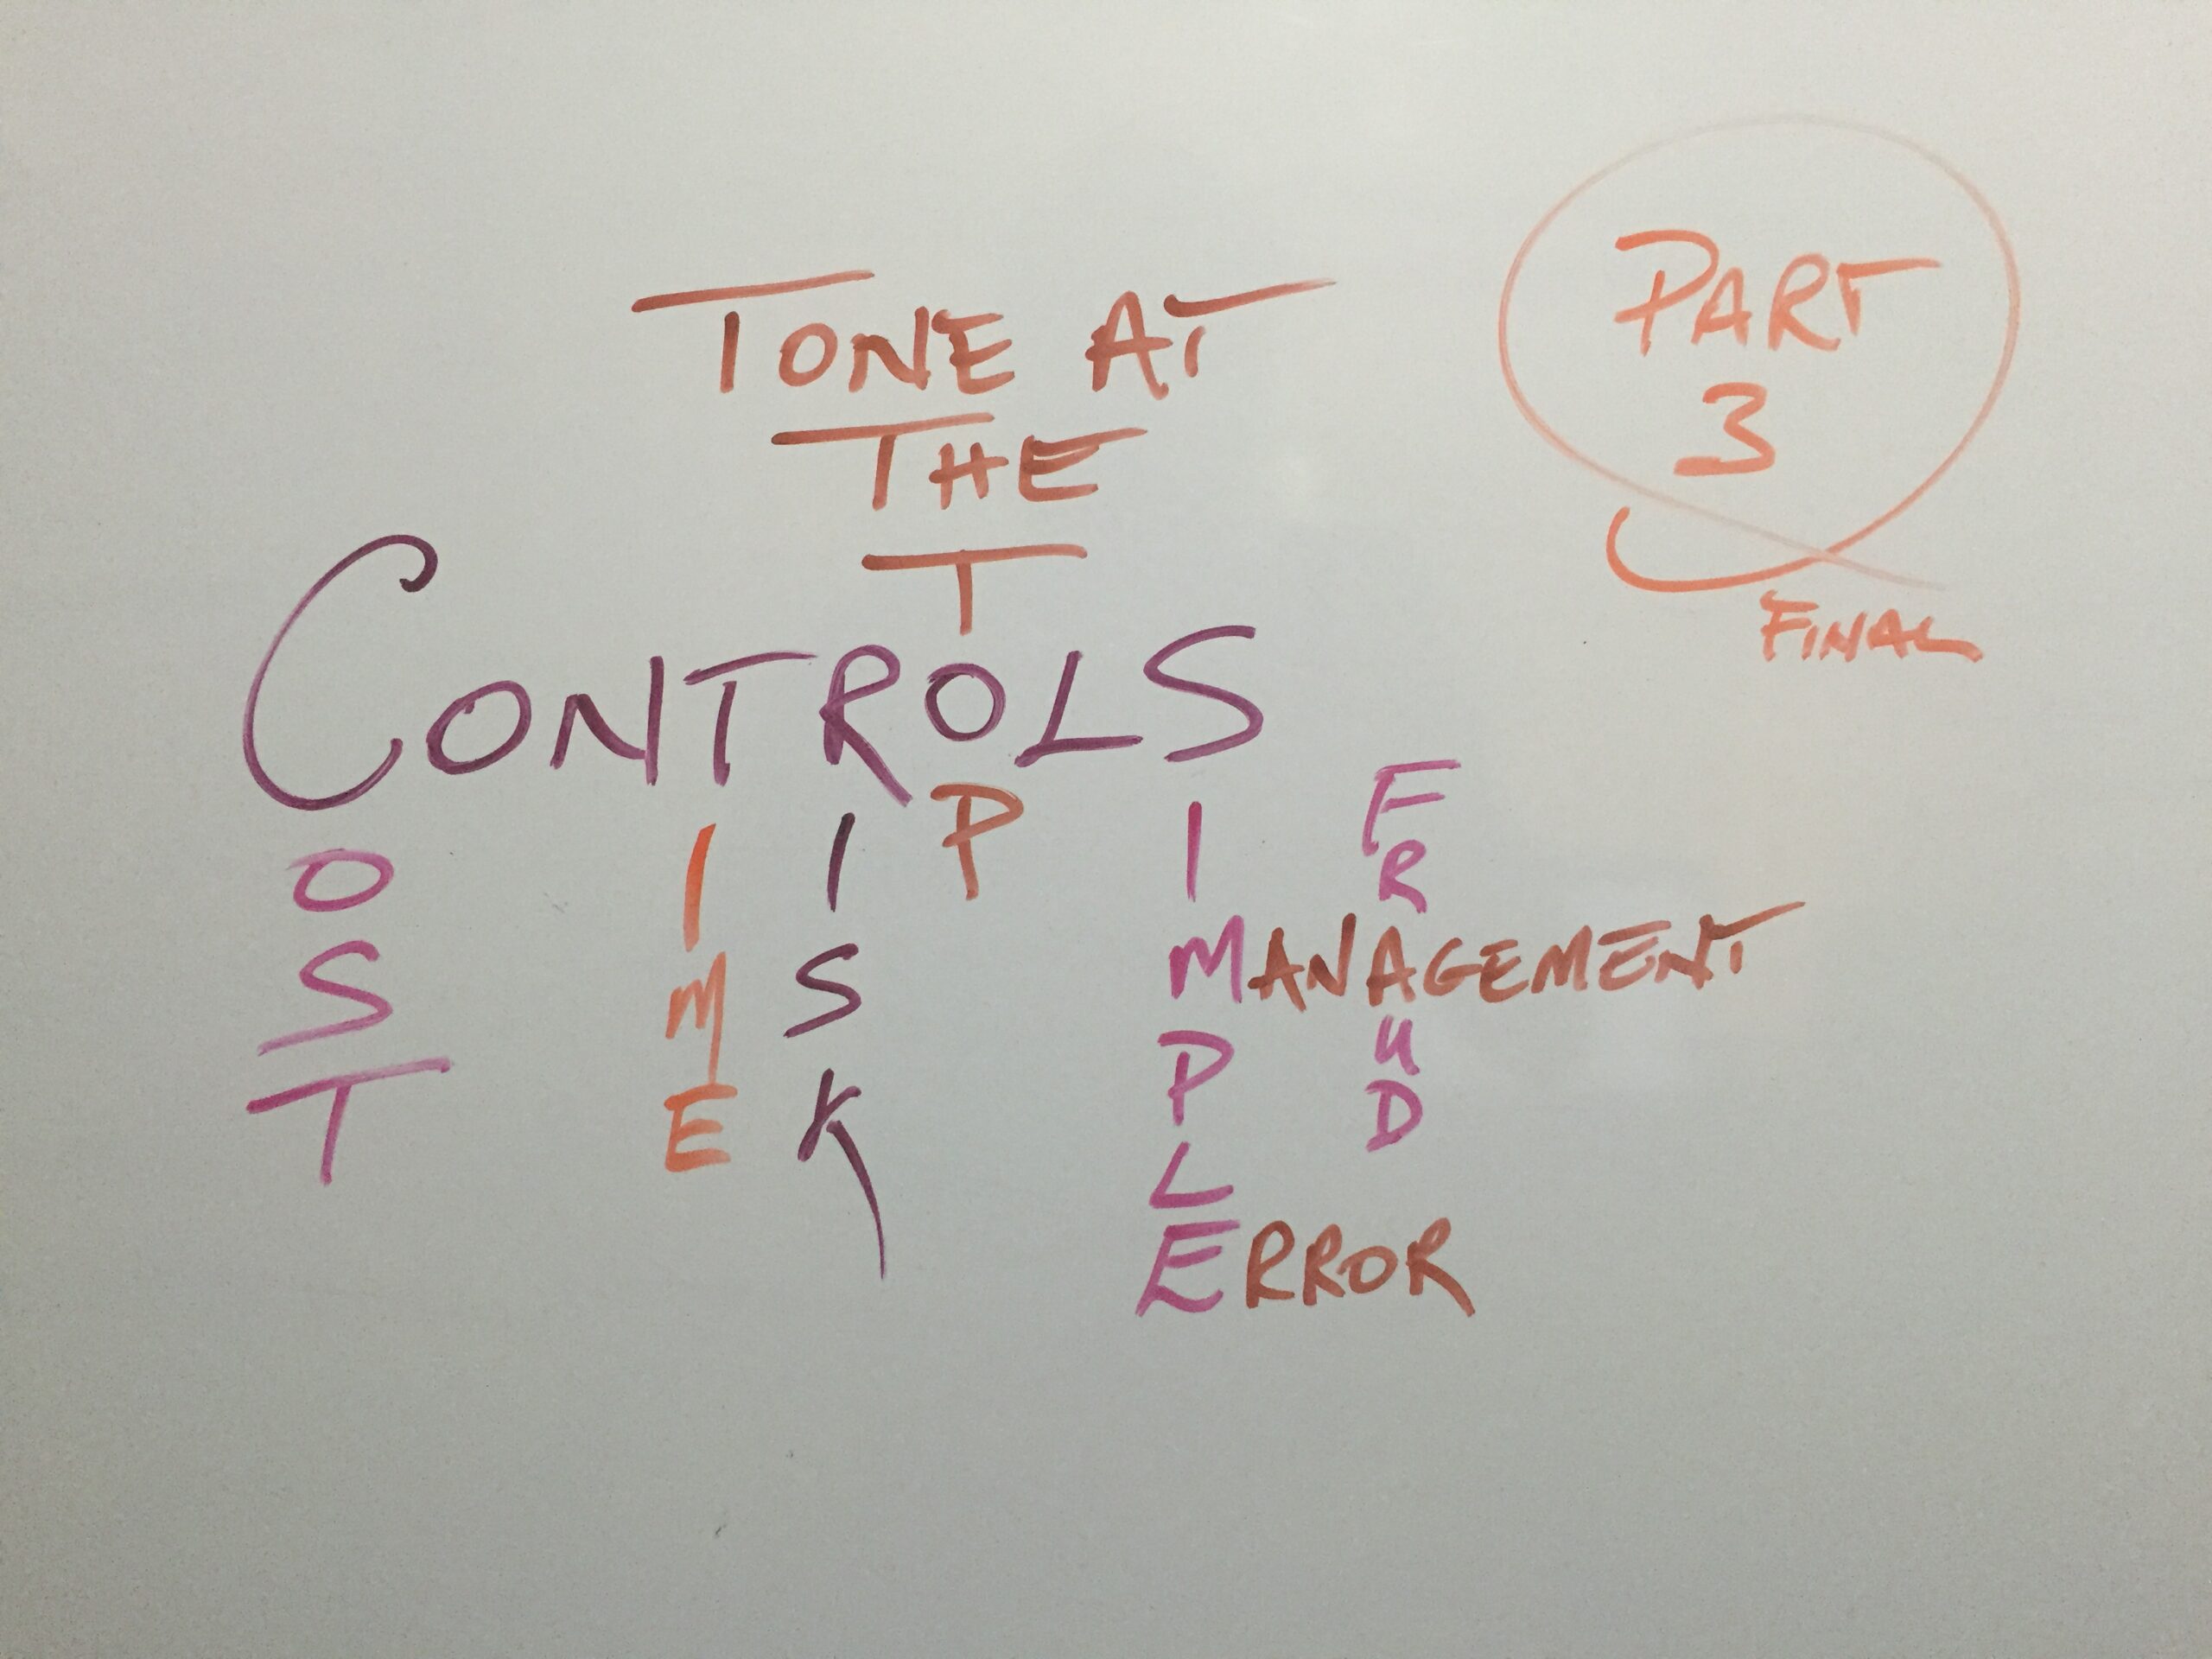 TONE AT
THE
TOP
CONTROLS
COST
TIME
RISK
SIMPLE
FRAUD
MANAGEMENT
ERROR
PART
3
FINAL